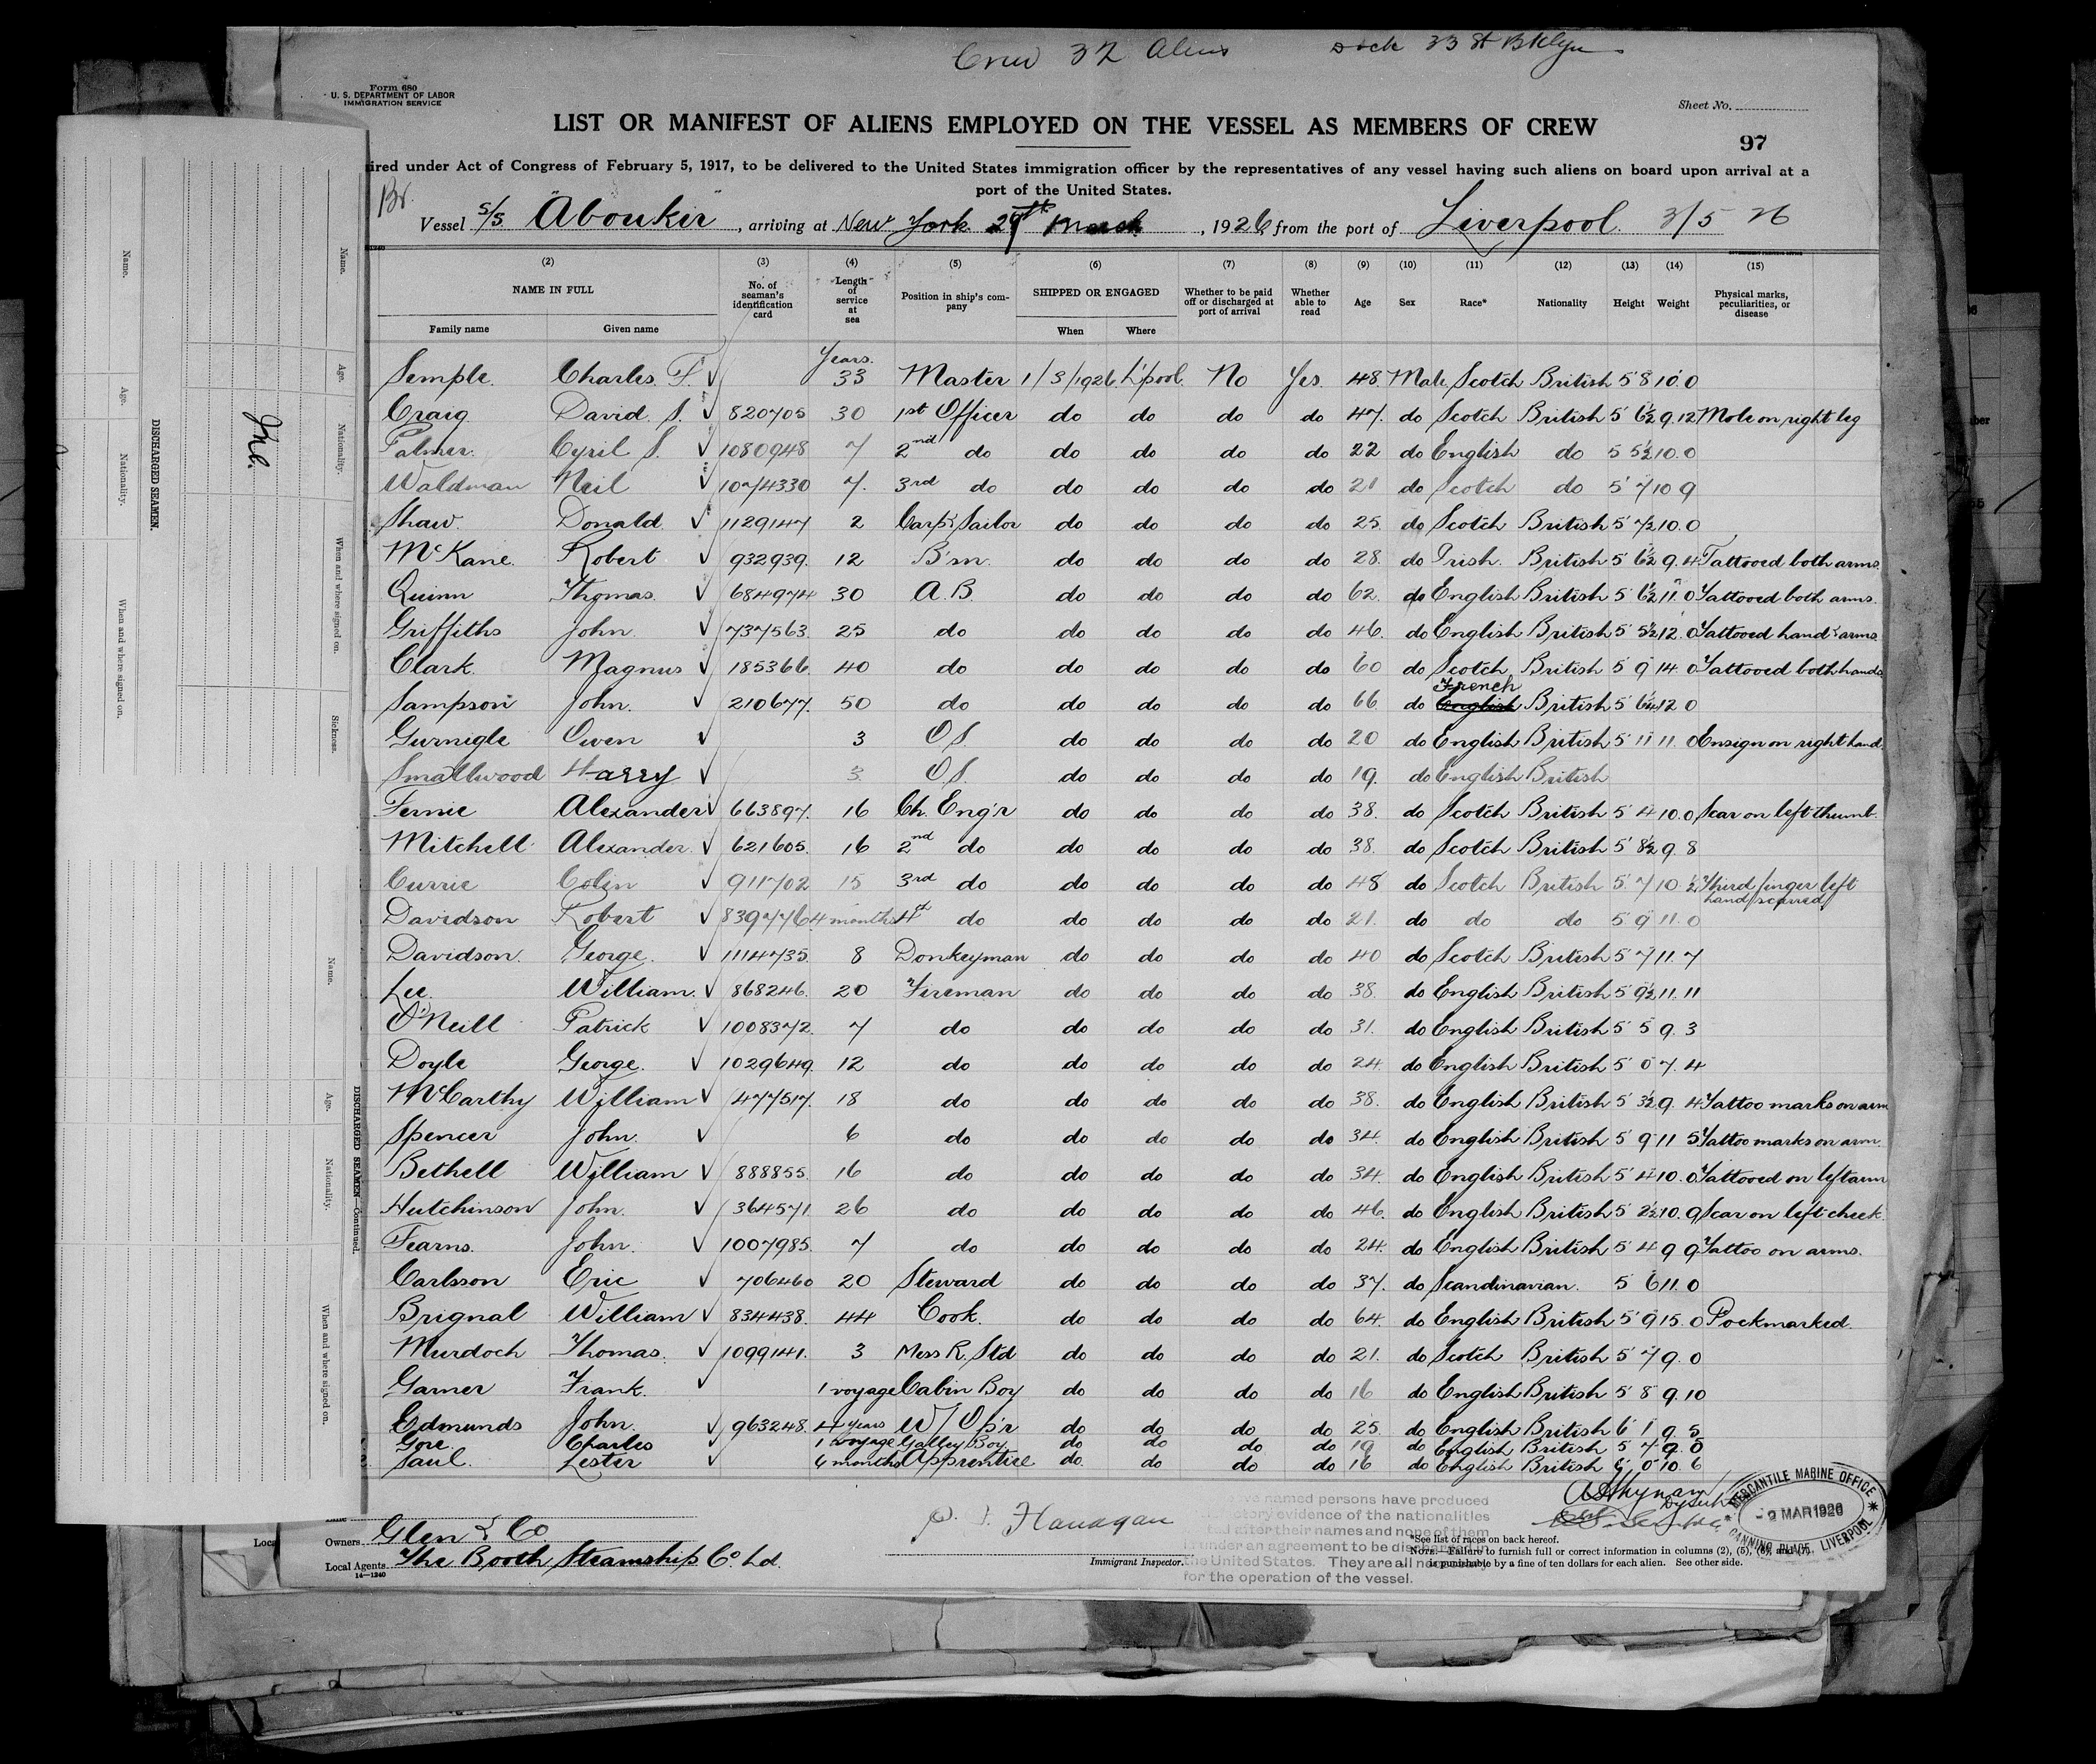 Crew 32 Aliens Dock 33 St Bklyn
Form 680
U. S. DEPARTMENT OF LABOR
IMMIGRATION SERVICE
Sheet No.
LIST OR MANIFEST OF ALIENS EMPLOYED ON THE VESSEL AS MEMBERS OF CREW
97
ired under Act of Congress of February 5, 1917, to be delivered to the United States immigration officer by the representatives of any vessel having such aliens on board upon arrival at a
port of the United States.
Br.
Vessel S/S "Aboukir", arriving at New York 29th March, 1926 from the port of Liverpool. 3/5 26
(2) (3) (4) (5) (6) (7) (8) (9) (10) (11) (12) (13) (14) (15)
NAME IN FULL No. of seaman's identification card Length of service at sea Position in ship's company SHIPPED OR ENGAGED Whether to be paid off or discharged at port of arrival Whether able to read Age Sex Race* Nationality Height Weight Physical marks, peculiarities, or disease
Family name Given name When Where
Years.
Semple. Charles. F. √ 33 Master 1/3/1926 L'pool. No Yes. 48. Male Scotch British 5 8 10.0
Craig David. S. √ 820705 30 1st Officer do do do do 47. do Scotch British 5 6½ 9.12 Mole on right leg
Palmer. Cyril S. √ 1080948 7 2nd do do do do do 22 do English do 5 5½ 10.0
Waldman Neil √ 1074330 7. 3rd do do do do do 21 do Scotch do 5 7 10 9
Shaw. Donald. √ 1129147 2 Carp'r Sailor do do do do 25. do Scotch British 5 7½ 10.0
McKane. Robert √ 932939. 12 B'sn. do do do do 28. do Irish. British 5 6½ 9.4 Tattooed both arms.
Quinn Thomas. √ 684974 30 A.B. do do do do 62. do English British 5 6½ 11.0 Tattooed both arms.
Griffiths John. √ 737563. 25 do do do do do 46. do English British 5 5½ 12.0 Tattooed hand & arms
Clark. Magnus √ 185366. 40 do do do do do 60 do Scotch British 5 9 14.0 Tattooed both hands
French
Sampson John. √ 210677. 50 do do do do do 66. do English British 5 6¼ 12 0
Gurnigle Owen √ 3 O.S. do do do do 20 do English British 5 11 11.0 Ensign on right hand.
Smallwood Harry √ 3. O.S. do do do do 19. do English British
Fernie Alexander √ 663897. 16 Ch. Eng'r do do do do 38. do Scotch British 5 4 10.0 Scar on left thumb.
Mitchell Alexander. √ 621605. 16 2nd do do do do do 38. do Scotch British 5 8½ 9.8
Currie Colin √ 911702 15 3rd do do do do do 48 do Scotch British 5 7 10 ½ Third finger left
hand scarred
Davidson Robert √ 839776 4 months 4th do do do do do 21. do do do 5 9 11.0
Davidson. George. √ 1114735. 8 Donkeyman do do do do 40 do Scotch British 5 7 11.7
Lee. William. √ 868246. 20 Fireman do do do do 38. do English British 5 9½ 11.11
O'Neill Patrick √ 1008372. 7 do do do do do 31. do English British 5 5 9.3
Doyle George. √ 1029649. 12 do do do do do 24. do English British 5 0 7.4
McCarthy William √ 477517. 18 do do do do do 38. do English British 5 3½ 9.4 Tattoo marks on arm
Spencer John. √ 6 do do do do do 34. do English British 5 9 11 5 Tattoo marks on arm.
Bethell William √ 888855. 16 do do do do do 34. do English British 5 4 10.0 Tattooed on left arm
Hutchinson John. √ 364571 26 do do do do do 46. do English British 5 2½ 10.9 Scar on left cheek.
Fearns. John. √ 1007985. 7 do do do do do 24. do English British 5 4 9 9 Tattoo on arms.
Carlsson Eric √ 706460 20 Steward do do do do 37. do Scandinavian. 5 6 11.0
Brignal William √ 834438. 44 Cook. do do do do 64. do English British 5 9 15.0 Pockmarked.
Murdoch Thomas. √ 1099141. 3 Mess R. Std do do do do 21. do Scotch British 5 7 9.0
Garner Frank. √ 1 voyage Cabin Boy do do do do 16 do English British 5 8 9.10
Edmunds John. √ 963248. 4 years W/Op'r do do do do 25. do English British 6 1 9.5
Gore. Charles √ 1 voyage Galley Boy. do do do do 19 do English British 5 7 9.0
Saul. Lester √ 6 months Apprentice do. do do do 16 do English British 5 0 10.6
MERCANTILE MARINE OFFICE
- 2 MAR 1926
CANNING PLACE, LIVERPOOL
ve named persons have produced
ctory evidence of the nationalities
d after their names and none of them
under an agreement to be
the United States. They are all necessary
for the operation of the vessel.
Owners. Glen & Co
Local Agents. The Booth Steamship Co Ld.
14—1240
Flanagan
Immigrant Inspector.
*See list of races on back hereof.
NOTE.—Failure to furnish full or correct information in columns (2), (5), (6), and (7),
is punishable by a fine of ten dollars for each alien. See other side.
Name. Age. Nationality. When and where signed on. Sickness.
DISCHARGED SEAMEN.
Name. Age. Nationality. When and where signed on.
DISCHARGED SEAMEN—Continued.
Name. Age. Nationality. When and where signed on.